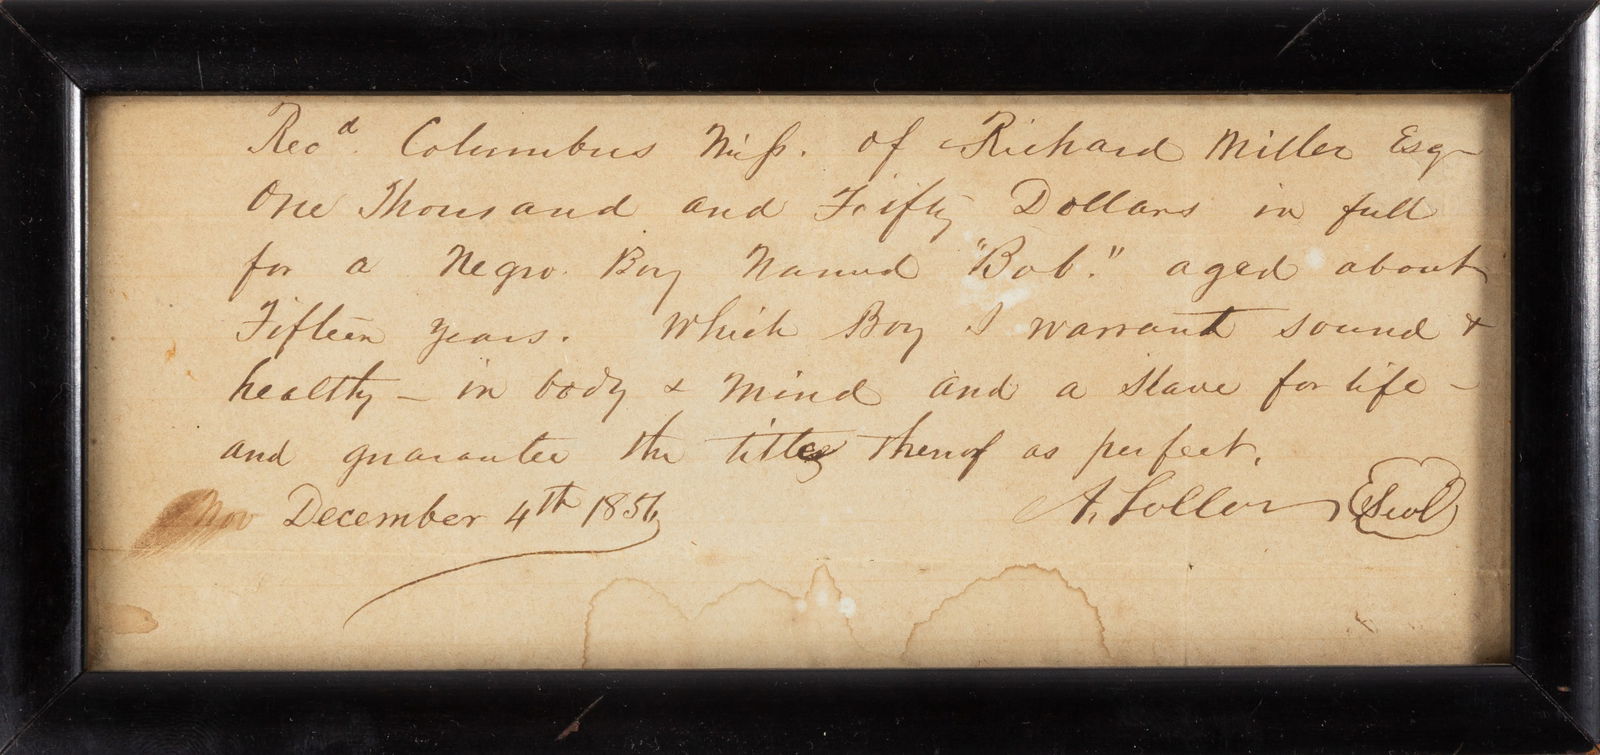 Recd. Columbus Miss. of Richard Miller Esq
One Thousand and Fifty Dollars in full
for a Negro Boy Named "Bob." aged about
Fifteen years. Which Boy I warrant sound &
healthy – in body & mind and a Slave for life –
and guarantee the title thereof as perfect.
Nov December 4th 1856
A. (Seal)